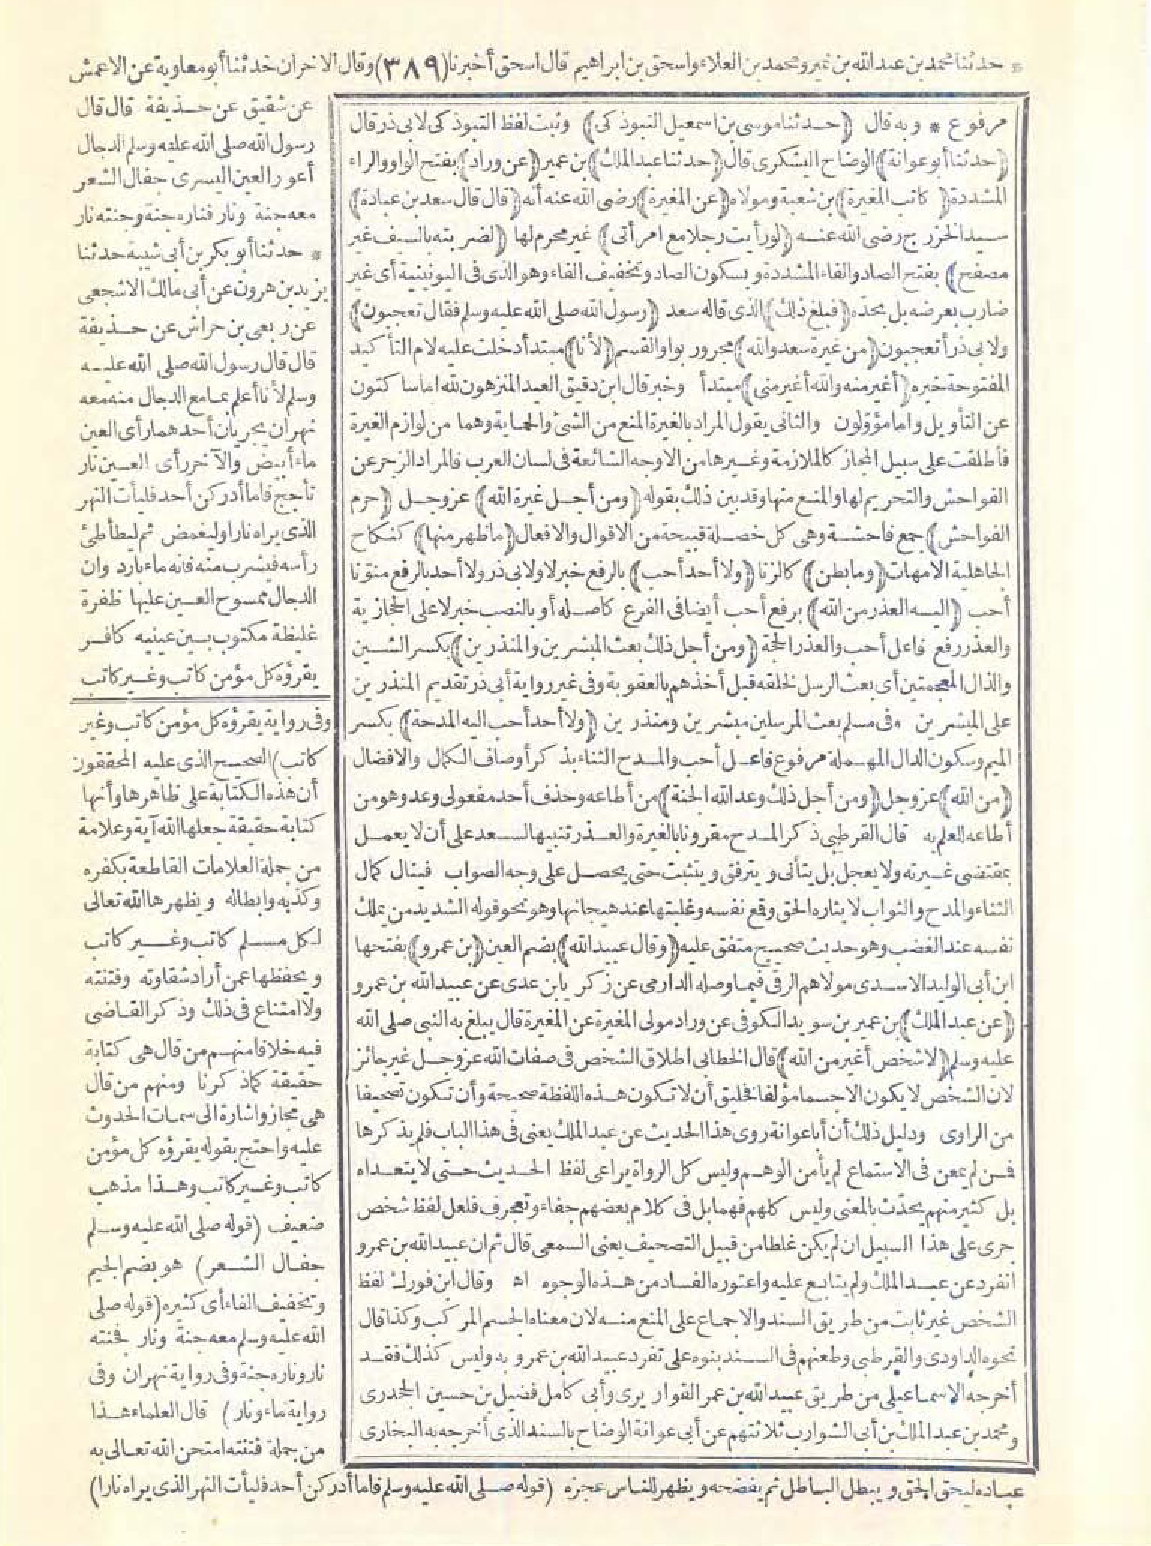 * حدثنا محمد بن عبدالله بن نمير ومحمد بن العلاء واسحق بن ابراهيم قال اسحق أخبرنا (٣٨٩) وقال الاخران حدثنا أبو معاوية عن الاعمش
مرفوع * وبه قال (حدثنا موسى بن اسمعيل التبوذكى) وثبت لفظ التبوذكى لابى ذر قال
(حدثنا أبو عوانة) الوضاح اليشكرى قال (حدثنا عبد الملك) بن عمير (عن وراد) بفتح الواو والراء
المشددة (كاتب المغيرة) بن شعبة ومولاه (عن المغيرة) رضى الله عنه أنه (قال قال سعد بن عبادة)
سيد الخزرج رضى الله عنه (لو رأيت رجلا مع امرأتى) غير محرم لها (لضربته بالسيف غير
مصفح) بفتح الصاد والفاء المشددة وبسكون الصاد وتخفيف الفاء وهو الذى فى اليونينية أى غير
ضارب بعرضه بل بحده (فبلغ ذلك) الذى قاله سعد (رسول الله صلى الله عليه وسلم فقال تعجبون)
ولابى ذر أتعجبون (من غيرة سعد والله) مجرور بواو القسم (لأنا) مبتدأ دخلت عليه لام التأكيد
المفتوحة خبره (أغير منه والله أغير منى) مبتدأ وخبر قال ابن دقيق العيد المنزهون لله اما ساكتون
عن التأويل واما مؤولون والثانى يقول المراد بالغيرة المنع من الشئ والحماية وهما من لوازم الغيرة
فأطلقت على سبيل المجاز كالملازمة وغيرها من الاوجه الشائعة فى لسان العرب فالمراد الزجر عن
الفواحش والتحريم لها والمنع منها وقد بين ذلك بقوله (ومن أجل غيرة الله) عز وجل (حرم
الفواحش) جمع فاحشة وهى كل خصلة قبيحة من الاقوال والافعال (ما ظهر منها) كنكاح
الجاهلية الامهات (وما بطن) كالزنا (ولا أحد أحب) بالرفع خبر لا ولابى ذر ولا أحد بالرفع منونا
أحب (اليه العذر من الله) برفع أحب أيضا فى الفرع كاصله أو بالنصب خبر لا على الحجازية
والعذر رفع فاعل أحب والعذر الحجة (ومن أجل ذلك بعث المبشرين والمنذرين) بكسر الشين
والذال المعجمتين أى بعث الرسل لخلقه قبل أخذهم بالعقوبة وفى غير رواية أبى ذر تقديم المنذرين
على المبشرين وفى مسلم بعث المرسلين مبشرين ومنذرين (ولا أحد أحب اليه المدحة) بكسر
الميم وسكون الدال المهملة مرفوع فاعل أحب والمدح الثناء بذكر أوصاف الكمال والافضال
(من الله) عز وجل (ومن أجل ذلك وعد الله الجنة) من أطاعه وحذف أحد مفعولى وعد وهو من
أطاعه للعلم به قال القرطبى ذكر المدح مقرونا بالغيرة والعذر تنبيها لسعد على أن لا يعمل
بمقتضى غيرته ولا يعجل بل يتأنى ويترفق ويتثبت حتى يحصل على وجه الصواب فينال كمال
الثناء والمدح والثواب لايثاره الحق وقمع نفسه وغلبتها عند هيجانها وهو نحو قوله الشديد من يملك
نفسه عند الغضب وهو حديث صحيح متفق عليه (وقال عبيد الله) بضم العين (بن عمرو) بفتحها
ابن أبى الوليد الاسدى مولاهم الرقى فيما وصله الدارمى عن زكريا بن عدى عن عبيد الله بن عمرو
(عن عبد الملك) بن عمير بن سويد الكوفى عن وراد مولى المغيرة عن المغيرة قال يبلغ به النبى صلى الله
عليه وسلم (لا شخص أغير من الله) قال الخطابى اطلاق الشخص فى صفات الله عز وجل غير جائز
لان الشخص لا يكون الا جسما مؤلفا فخليق أن لا تكون هذه اللفظة صحيحة وأن تكون تصحيفا
من الراوى ودليل ذلك أن أبا عوانة روى هذا الحديث عن عبد الملك يعنى فى هذا الباب فلم يذكرها
فمن لم يمعن فى الاستماع لم يأمن الوهم وليس كل الرواة يراعى لفظ الحديث حتى لا يتعداه
بل كثير منهم يحدث بالمعنى وليس كلهم فهما بل فى كلام بعضهم جفاء وتعجرف فلعل لفظ شخص
جرى على هذا السبيل ان لم يكن غلطا من قبيل التصحيف يعنى السمعى قال ثم ان عبيد الله بن عمرو
انفرد عن عبد الملك ولم يتابع عليه واعتوره الفساد من هذه الوجوه اه وقال ابن فورك لفظ
الشخص غير ثابت من طريق السند والاجماع على المنع منه لان معناه الجسم المركب وكذا قال
نحوه الداودى والقرطبى وطعنهم فى السند بنوه على تفرد عبيد الله بن عمرو به وليس كذلك فقد
أخرجه الاسماعيلى من طريق عبيد الله بن عمر القواريرى وأبى كامل فضيل بن حسين الجحدرى
ومحمد بن عبد الملك بن أبى الشوارب ثلاثتهم عن أبى عوانة الوضاح بالسند الذى أخرجه به البخارى
عن شقيق عن حذيفة قال قال
رسول الله صلى الله عليه وسلم الدجال
أعور العين اليسرى جفال الشعر
معه جنة ونار فناره جنة وجنته نار
* حدثنا أبو بكر بن أبى شيبة حدثنا
يزيد بن هرون عن أبى مالك الاشجعى
عن ربعى بن حراش عن حذيفة
قال قال رسول الله صلى الله عليه
وسلم لأنا أعلم بما مع الدجال منه معه
نهران يجريان أحدهما رأى العين
ماء أبيض والآخر رأى العين نار
تأجج فاما أدركن أحد فليأت النهر
الذى يراه نارا وليغمض ثم ليطأطئ
رأسه فيشرب منه فانه ماء بارد وان
الدجال ممسوح العين عليها ظفرة
غليظة مكتوب بين عينيه كافر
يقرؤه كل مؤمن كاتب وغير كاتب
وفى رواية يقرؤه كل مؤمن كاتب وغير
كاتب) الصحيح الذى عليه المحققون
أن هذه الكتابة على ظاهرها وأنها
كتابة حقيقة جعلها الله آية وعلامة
من جملة العلامات القاطعة بكفره
وكذبه وابطاله ويظهرها الله تعالى
لكل مسلم كاتب وغير كاتب
ويخفيها عمن أراد شقاوته وفتنته
ولا امتناع فى ذلك وذكر القاضى
فيه خلافا منهم من قال هى كتابة
حقيقة كما ذكرنا ومنهم من قال
هى مجاز واشارة الى سمات الحدوث
عليه واحتج بقوله يقرؤه كل مؤمن
كاتب وغير كاتب وهذا مذهب
ضعيف (قوله صلى الله عليه وسلم
جفال الشعر) هو بضم الجيم
وتخفيف الفاء أى كثيره (قوله صلى
الله عليه وسلم معه جنة ونار فجنته
نار وناره جنة وفى رواية نهران وفى
رواية ماء ونار) قال العلماء هذا
من جملة فتنته امتحن الله تعالى به
عباده ليحق الحق ويبطل الباطل ثم يفضحه ويظهر للناس عجزه (قوله صلى الله عليه وسلم فاما أدركن أحد فليأت النهر الذى يراه نارا)